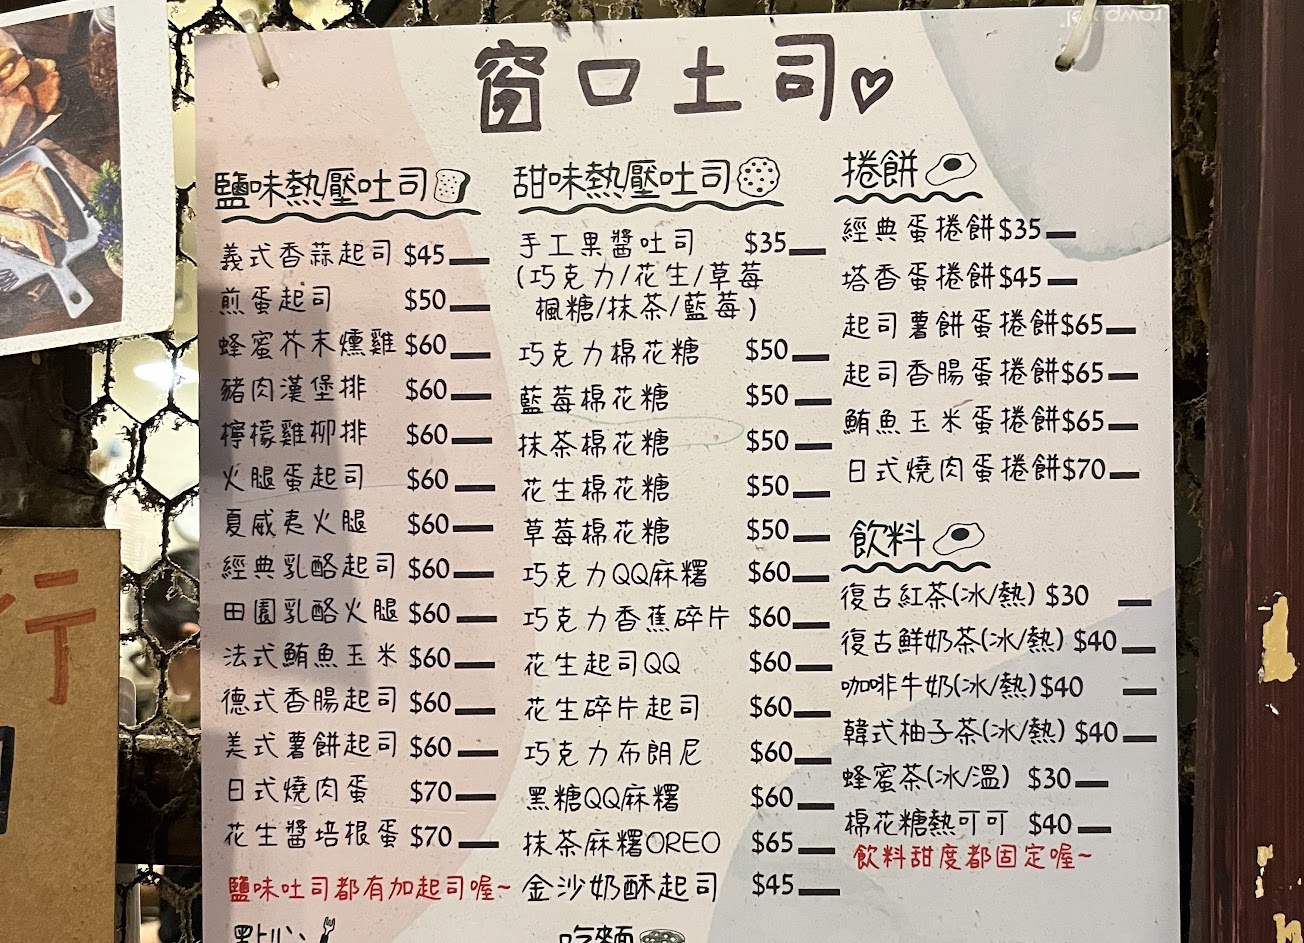 窗口土司
鹽味熱壓吐司
義式香蒜起司 $45
煎蛋起司 $50
蜂蜜芥末燻雞 $60
豬肉漢堡排 $60
檸檬雞柳排 $60
火腿蛋起司 $60
夏威夷火腿 $60
經典乳酪起司 $60
田園乳酪火腿 $60
法式鮪魚玉米 $60
德式香腸起司 $60
美式薯餅起司 $60
日式燒肉蛋 $70
花生醬培根蛋 $70
鹽味吐司都有加起司喔~
點心
甜味熱壓吐司
手工果醬吐司 $35
(巧克力/花生/草莓
楓糖/抹茶/藍莓)
巧克力棉花糖 $50
藍莓棉花糖 $50
抹茶棉花糖 $50
花生棉花糖 $50
草莓棉花糖 $50
巧克力QQ麻糬 $60
巧克力香蕉碎片 $60
花生起司QQ $60
花生碎片起司 $60
巧克力布朗尼 $60
黑糖QQ麻糬 $60
抹茶麻糬OREO $65
金沙奶酥起司 $45
吃麵
捲餅
經典蛋捲餅$35
塔香蛋捲餅$45
起司薯餅蛋捲餅$65
起司香腸蛋捲餅$65
鮪魚玉米蛋捲餅$65
日式燒肉蛋捲餅$70
飲料
復古紅茶(冰/熱) $30
復古鮮奶茶(冰/熱) $40
咖啡牛奶(冰/熱)$40
韓式柚子茶(冰/熱) $40
蜂蜜茶(冰/溫) $30
棉花糖熱可可 $40
飲料甜度都固定喔~
行